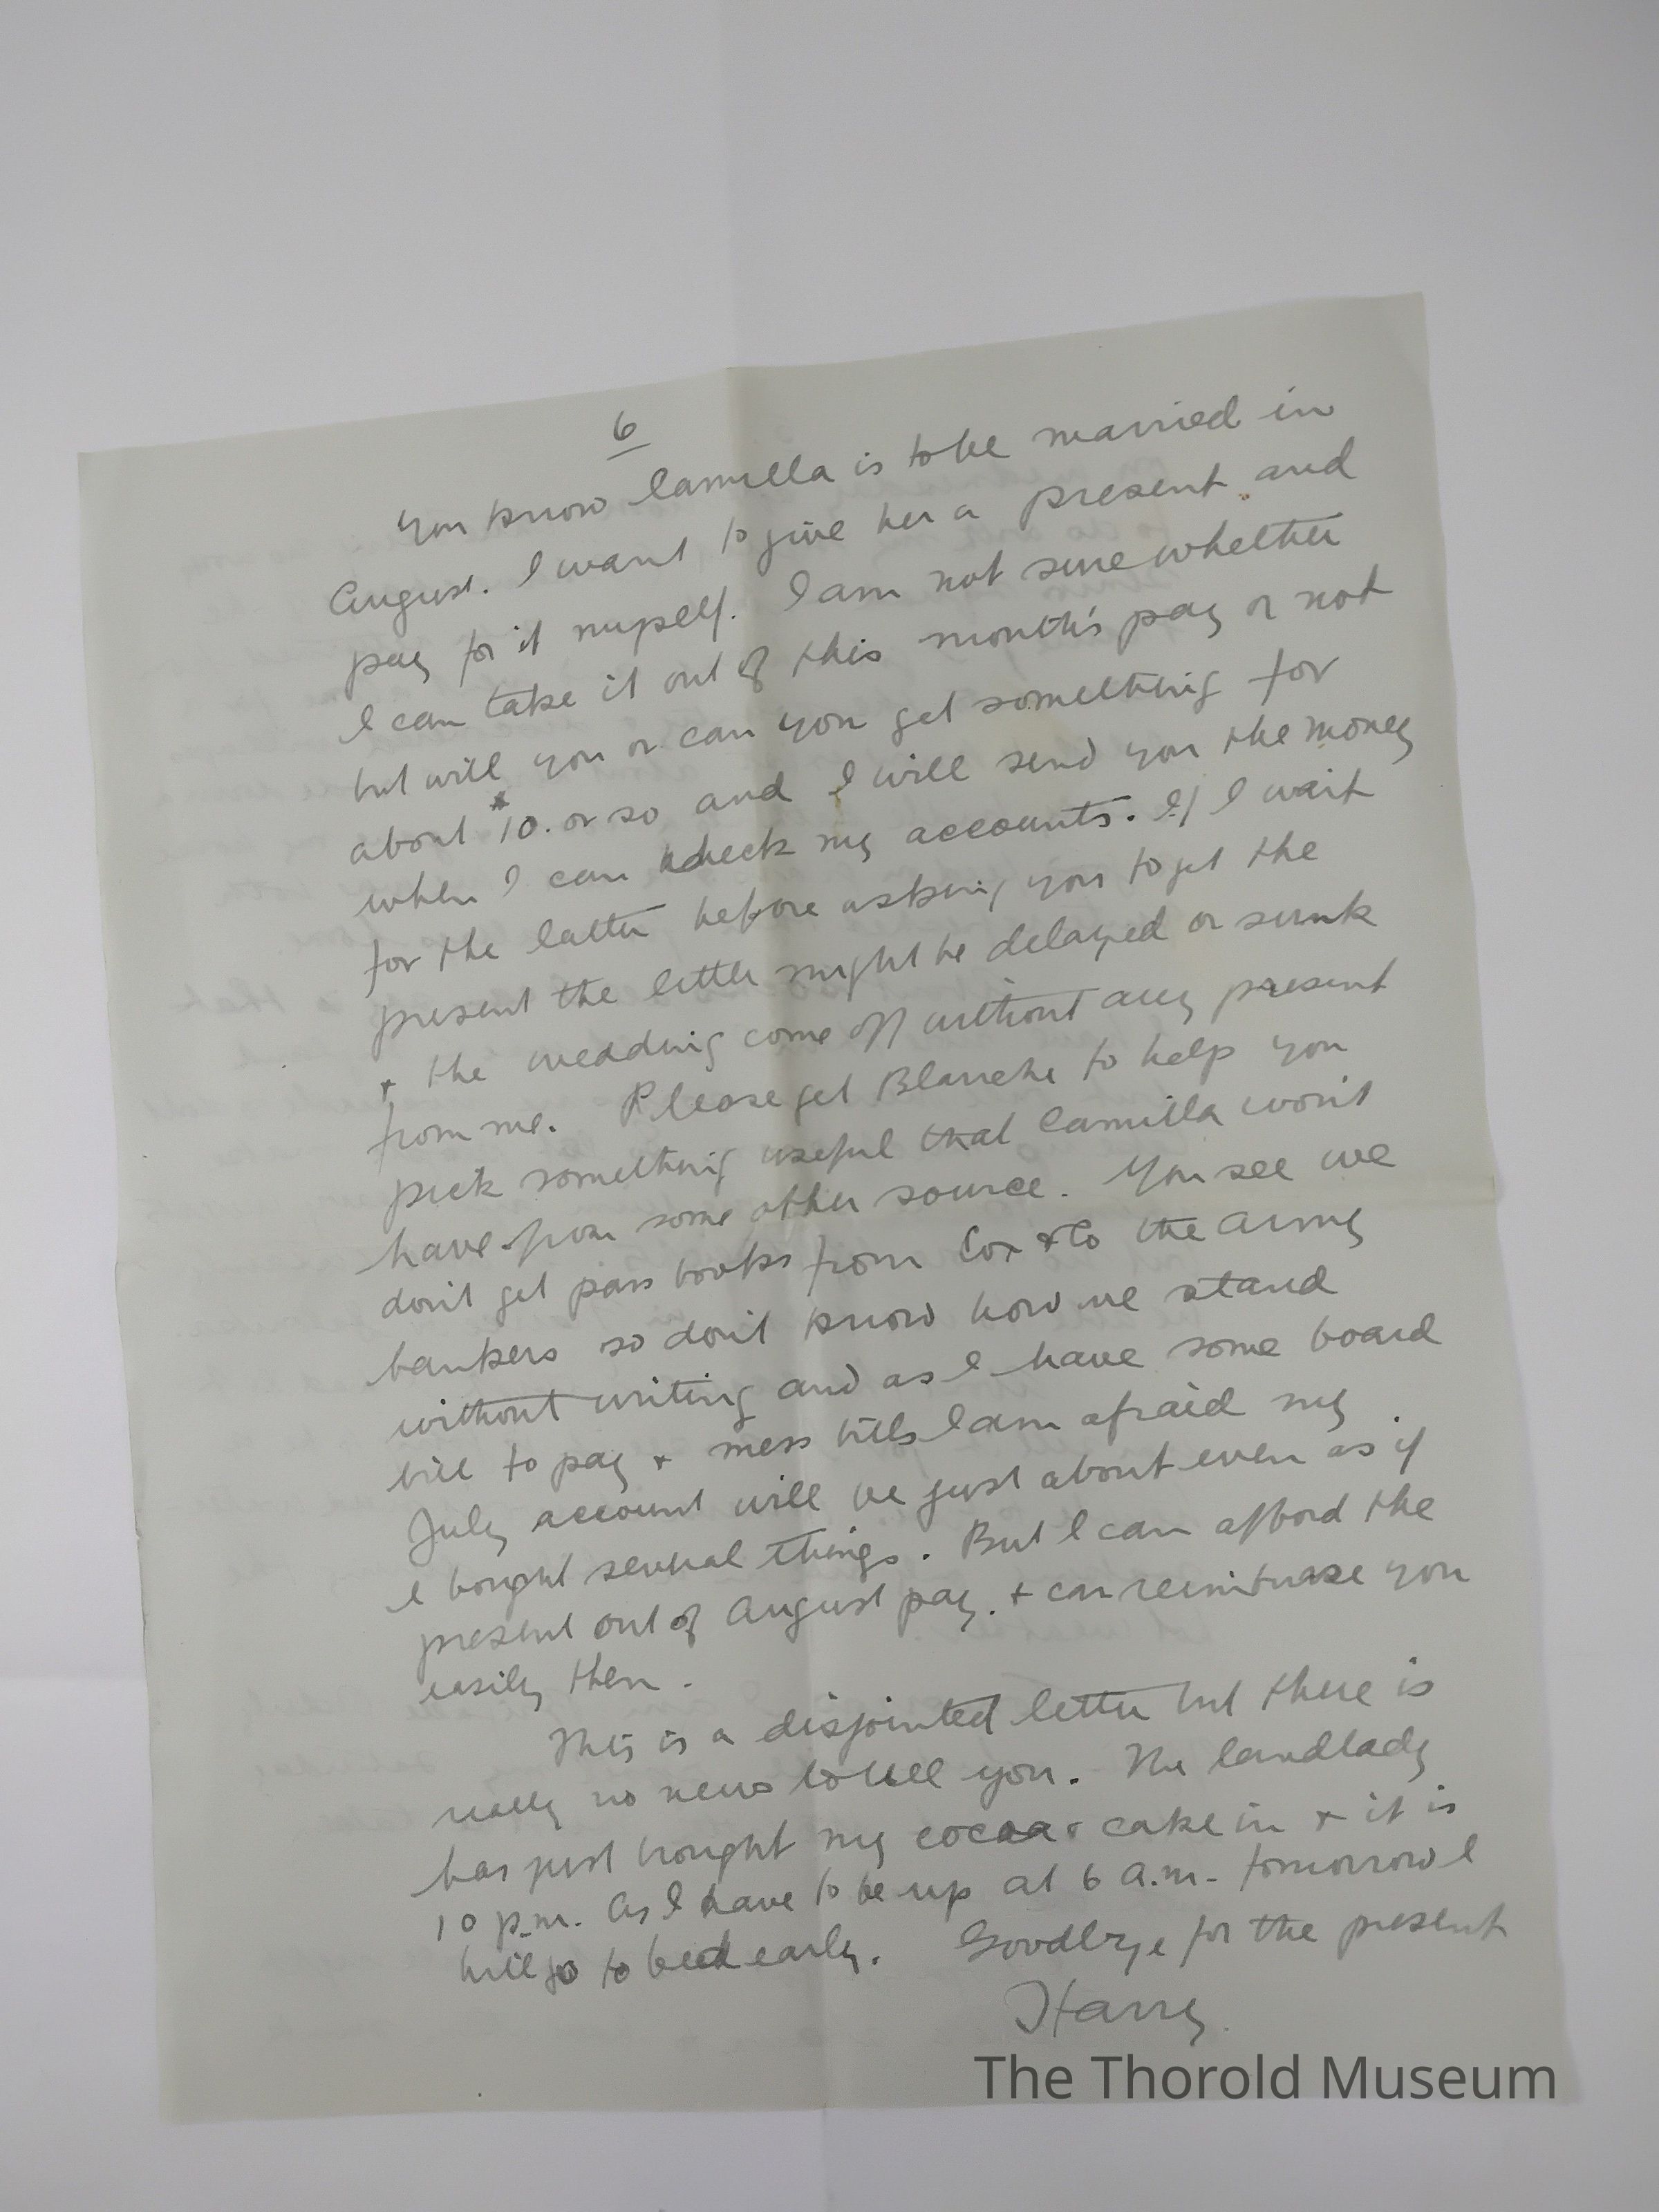 6
You know Camilla is to be married in
August. I want to give her a present and
pay for it myself. I am not sure whether
I can take it out of this month's pay or not
but will you or can you get something for
about $10. or so and I will send you the money
when I can check my accounts. If I wait
for the latter before asking you to get the
present the letter might be delayed or sunk
+ the wedding come off without any present
from me. Please get Blanche to help you
pick something useful that Camilla won't
have from some other source. You see we
don't get pass books from Cox & Co the army
bankers so don't know how we stand
without writing and as I have some board
bill to pay + mess bills I am afraid my
July account will be just about even as if
I bought several things. But I can afford the
present out of August pay. + can reimburse you
easily then.
This is a disjointed letter but there is
really no news to tell you. The landlady
has just brought my cocoa & cake in + it is
10 p.m. As I have to be up at 6 a.m. tomorrow I
will go to bed early. Goodbye for the present
Harry.
The Thorold Museum